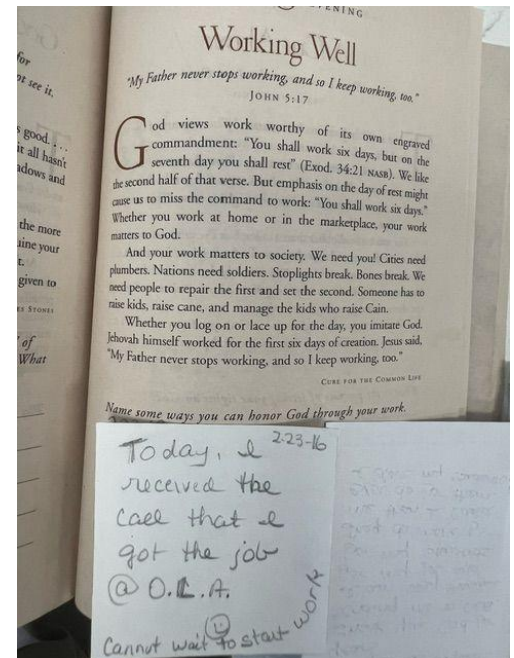 for
ot see it.
s good. . .
it all hasn't
adows and
the more
uine your
t.
given to
ES STONES
of
What
EVENING
Working Well
"My Father never stops working, and so I keep working, too."
JOHN 5:17
God views work worthy of its own engraved
commandment: "You shall work six days, but on the
seventh day you shall rest" (Exod. 34:21 NASB). We like
the second half of that verse. But emphasis on the day of rest might
cause us to miss the command to work: "You shall work six days."
Whether you work at home or in the marketplace, your work
matters to God.
And your work matters to society. We need you! Cities need
plumbers. Nations need soldiers. Stoplights break. Bones break. We
need people to repair the first and set the second. Someone has to
raise kids, raise cane, and manage the kids who raise Cain.
Whether you log on or lace up for the day, you imitate God.
Jehovah himself worked for the first six days of creation. Jesus said,
"My Father never stops working, and so I keep working, too."
CURE FOR THE COMMON LIFE
Name some ways you can honor God through your work.
2-23-16
Today, I
received the
call that I
got the job
@ O.L.A.
Cannot wait to start work